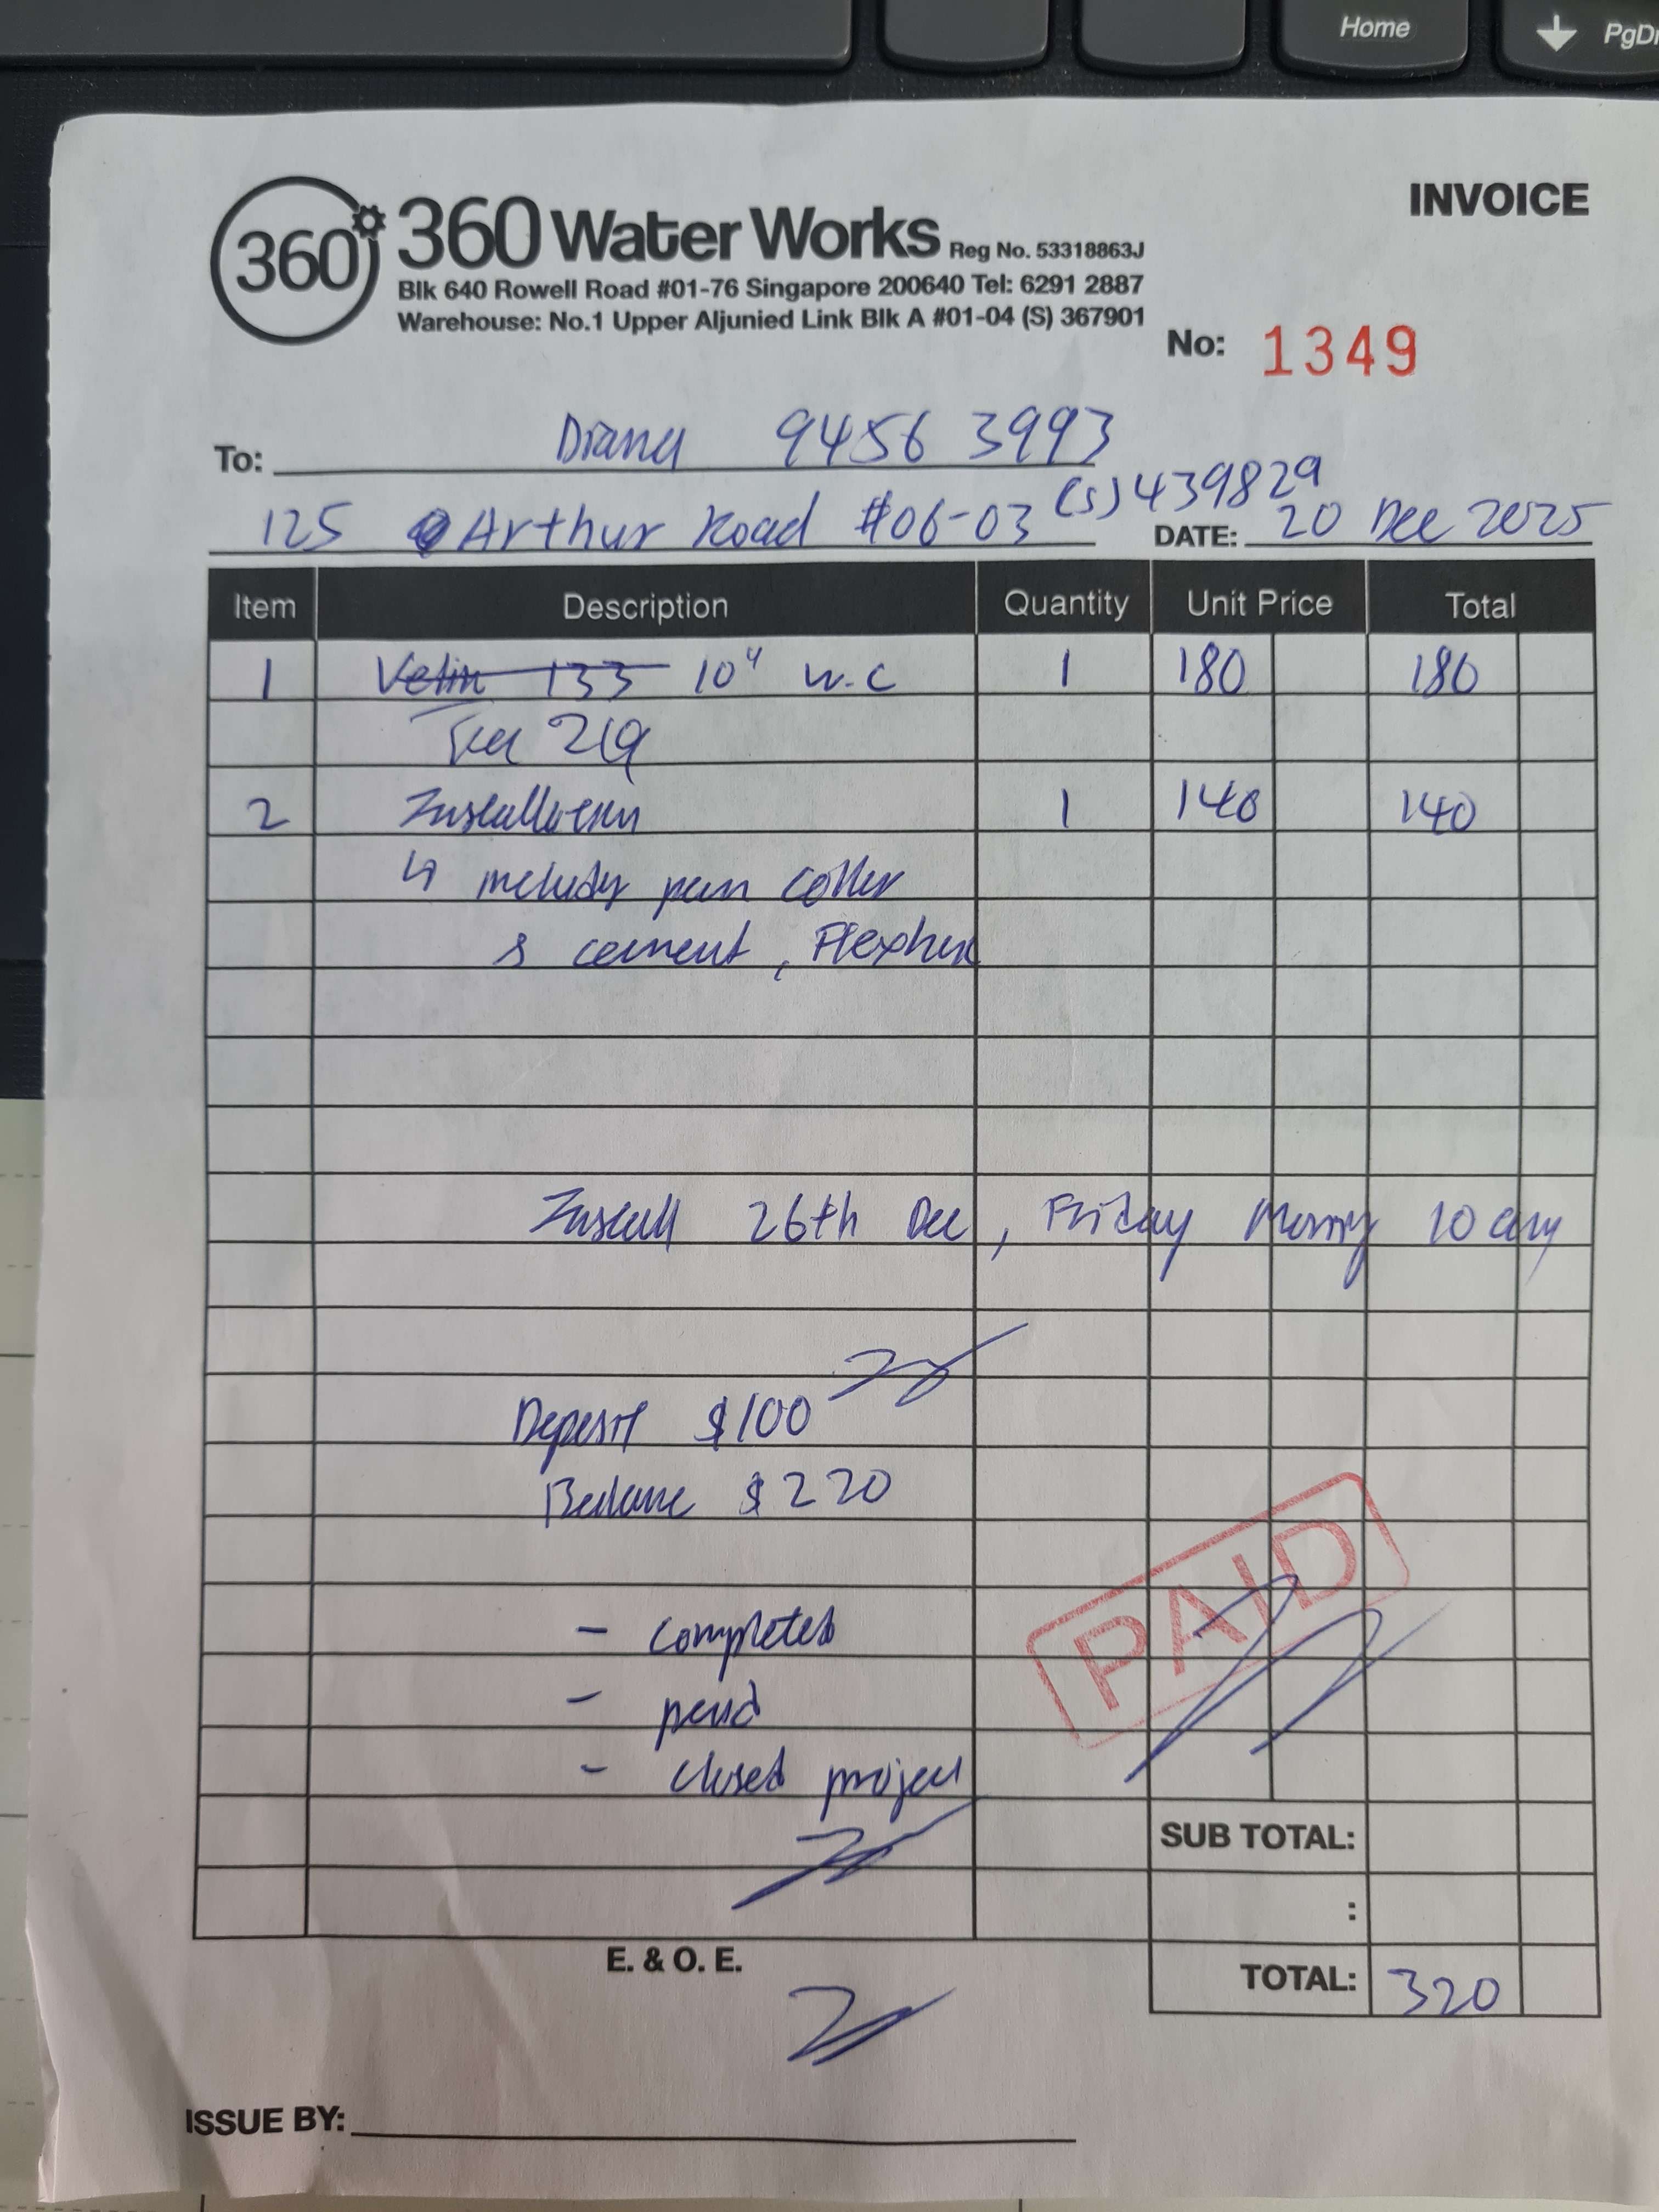 Home
PgDn
INVOICE
360
360 Water Works Reg No. 53318863J
Blk 640 Rowell Road #01-76 Singapore 200640 Tel: 6291 2887
Warehouse: No.1 Upper Aljunied Link Blk A #01-04 (S) 367901
No: 1349
To: Diana 9456 3993
125 Arthur Road #06-03 (S) 439829 DATE: 20 Dec 2025
Item Description Quantity Unit Price Total
1 133 10" W.C 1 180 180
219
2 Installation 1 140 140
↳ includy pan coller
& cement, Flexhose
Install 26th Dec, Friday Morning 10 am
Deposit $100
Balance $220
PAID
- completed
- paid
- closed project
SUB TOTAL:
:
E. & O. E.
TOTAL: 320
ISSUE BY: